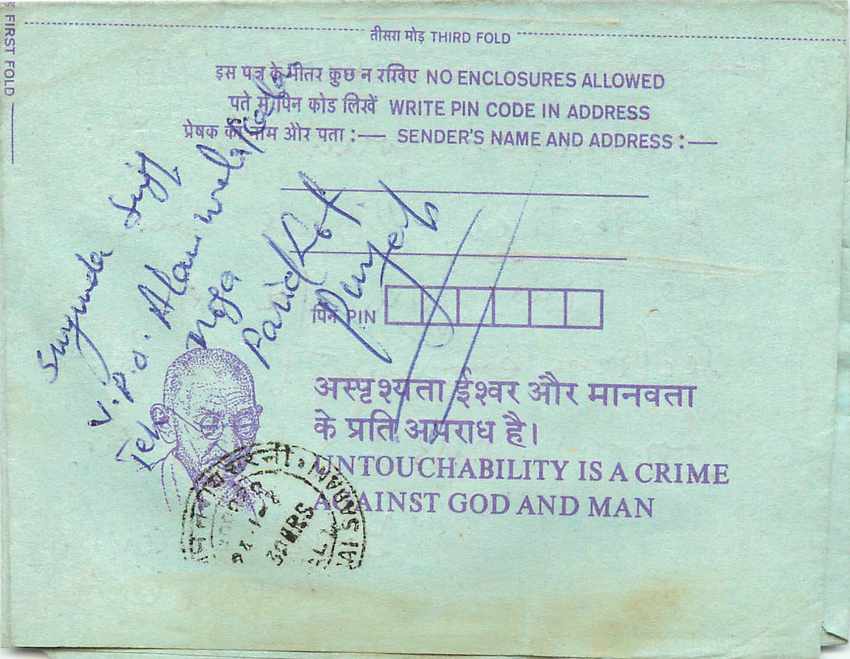 FIRST FOLD
तीसरा मोड़ THIRD FOLD
इस पत्र के भीतर कुछ न रखिए NO ENCLOSURES ALLOWED
पते में पिन कोड लिखें WRITE PIN CODE IN ADDRESS
प्रेषक का नाम और पता :— SENDER'S NAME AND ADDRESS :—
V.P.O. Alamwala
Teh Moga
Faridkot
Punjab
पिन PIN
अस्पृश्यता ईश्वर और मानवता
के प्रति अपराध है।
UNTOUCHABILITY IS A CRIME
AGAINST GOD AND MAN
30HRS